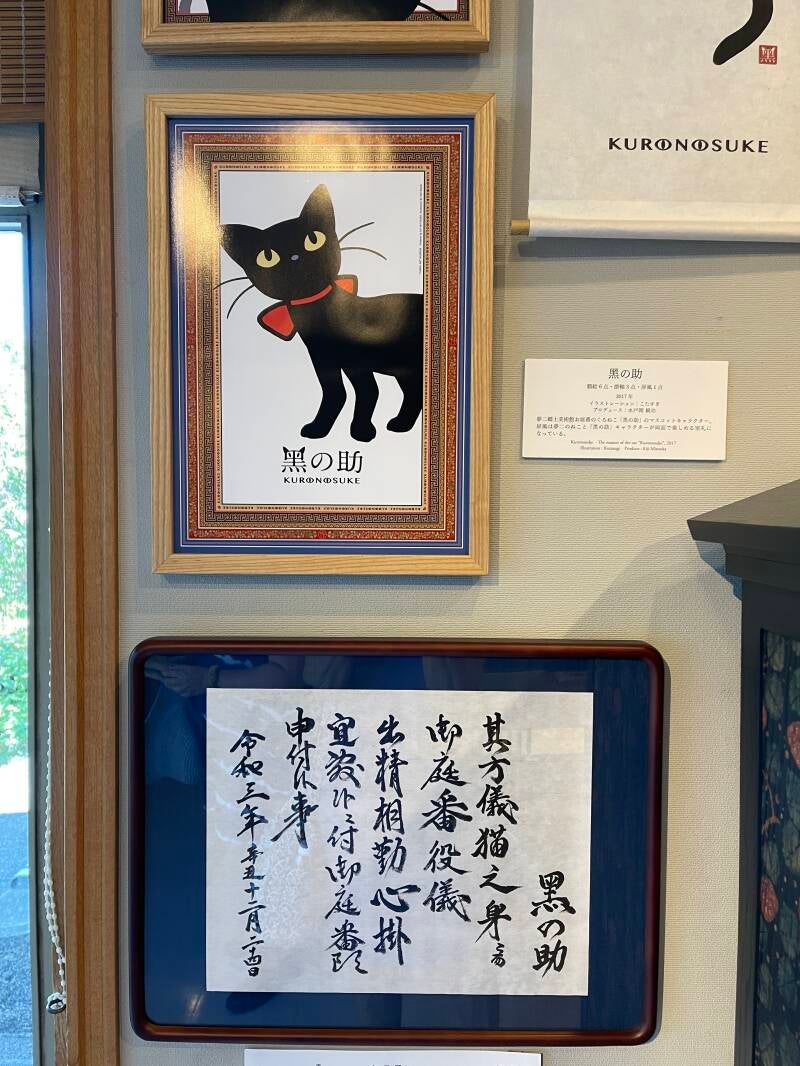 KURONOSUKE
黑の助
KURONOSUKE
黑の助
額絵6点・掛軸3点・屏風1点
2017年
イラストレーション:こたすぎ
プロデュース:水戸岡 鋭治
夢二郷土美術館お庭番のくろねこ「黑の助」のマスコットキャラクター。
屏風は夢二のねこと「黑の助」キャラクターが両面で楽しめる室礼に
なっている。
黒の助
其方儀猫之身
御庭番役儀
出精相勤心掛
宜敷 付御庭番
申付候事
令和三年辛丑十二月二十四日